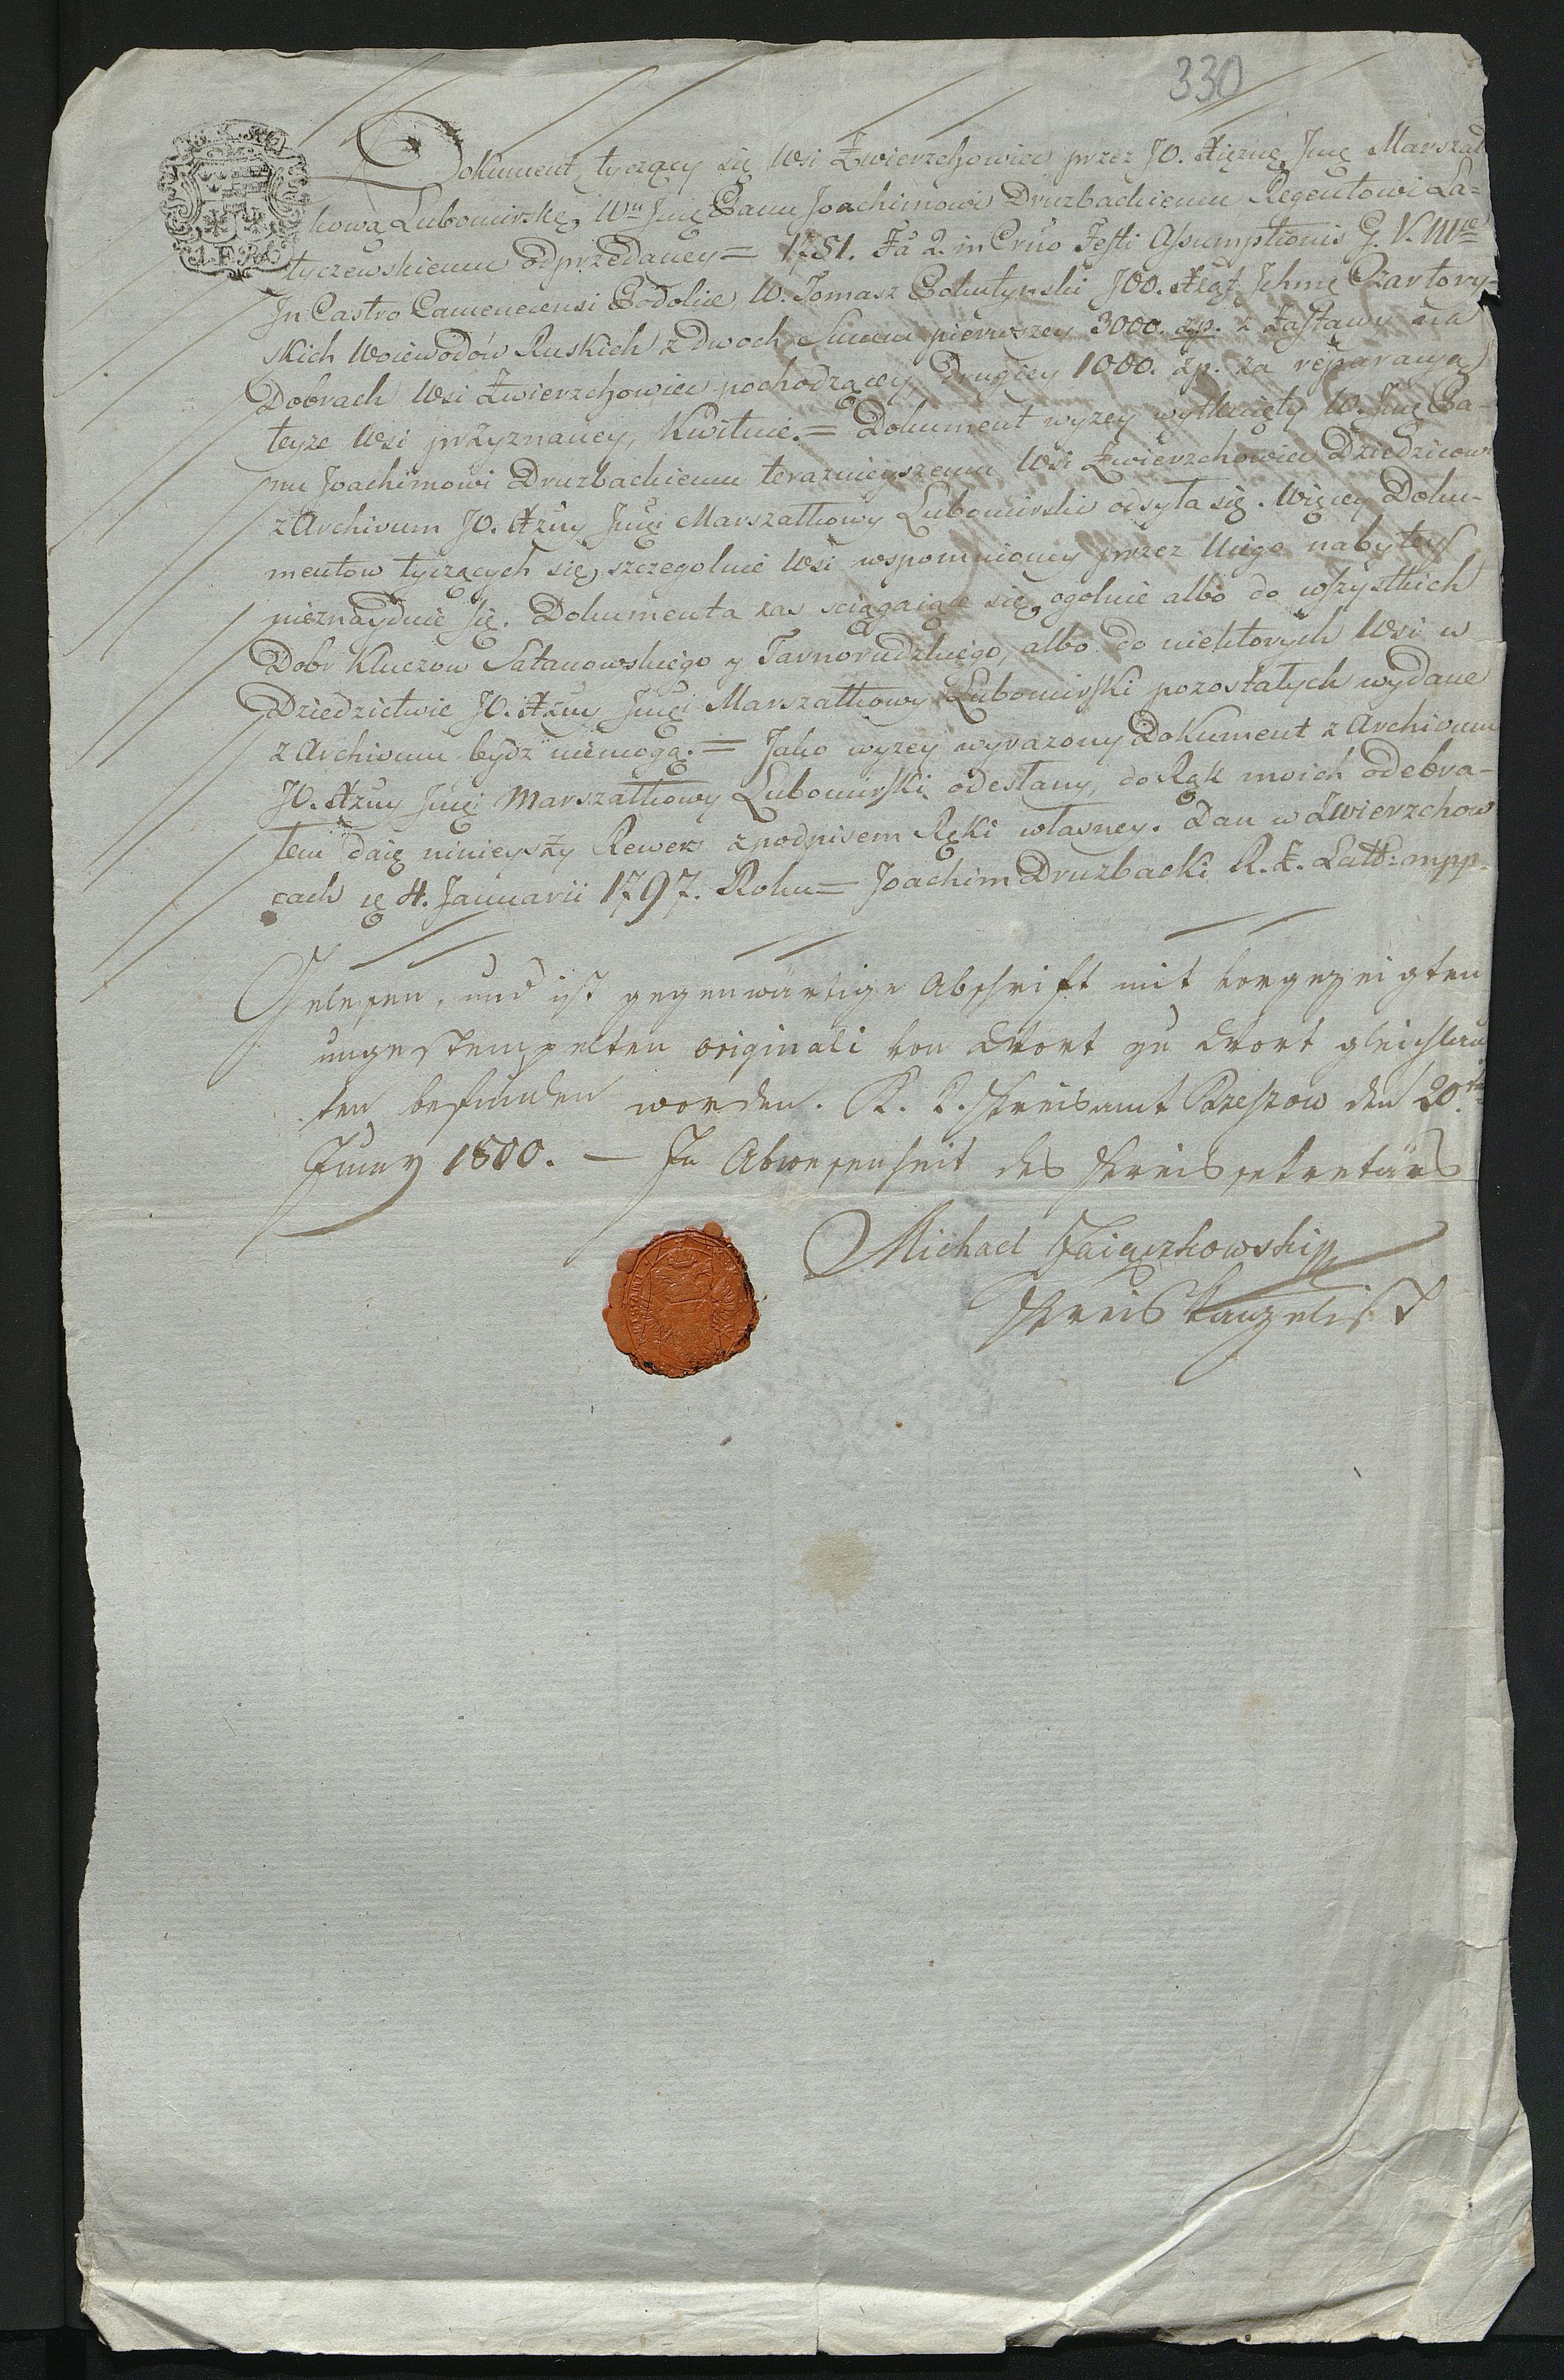 330
Dokument, tyczący się Wsi Zwierzchowiec przez JO. Xiężnę Jmę Marszał
kową Lubomirskę, Wmu Jmę Panu Joachimowi Druzbackiemu Regentowi La=
tyczewskiemu odprzedaney = 1751. Fa 2. in Cr͞no Festi Assumptionis G. V. Mie
In Castro Camenecensi Podolie W. Tomasz JOO. Xżąt Ichmę Czartory-
skich Woiewodów Ruskich z dwoch Summ pierwszey 3000. zp. z Zastawu na
Dobrach Wsi Zwierzchowiec pochodzącey, drugiey 1000. zp. za reparacyą
teyze Wsi przyznaney, Kwituie. = Dokument wyzey wytknięty W. Jmę Pa-
nu Joachimowi Druzbackiemu teraznieyszemu Wsi Zwierzchowiec Dziedzicowi
z Archivum JO. Xżny Jmę Marszałkowy Lubomirski odsyła się. Więcey Doku-
mentow tyczących się szczegolnie Wsi wspomnioney przez Niego nabytey
nieznayduie się. Dokumenta zas sciągaiące się ogolnie albo do wszystkich
Dobr Kluczow Satanowskiego y Tarnorudzkiego, albo do niektorych Wsi w
Dziedzictwie JO. Xżny Jmęi Marszałkowy Lubomirski pozostałych wydane
z Archivum bydz niemogą. = Jako wyzey wyrazony Dokument z Archivum
JO. Xżny Jmęi Marszałkowy Lubomirski odesłany, do Rąk moich odebra-
łem daię ninieyszy Rewers z podpisem Ręki własney. Dan w Zwierzchow
cach d. 4. Januarii 1797. Roku = Joachim Druzbacki R. Z. Latt: mpp.
Gelesen, und ist gegenwärtige Abschrift mit vorgezeigten
ungestempelten originali von Wort zu Wort gleichlau
ten befunden worden. K. K. Kreisamt Rzeszow den 20.ten
Juny 1800. — In Abwesenheit des Kreissekretärs
Michael Zaiączkowski
Kreiskanzelist